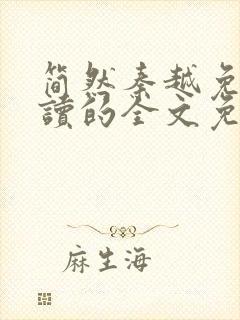 简然秦越免
讀的全文免
麻生海